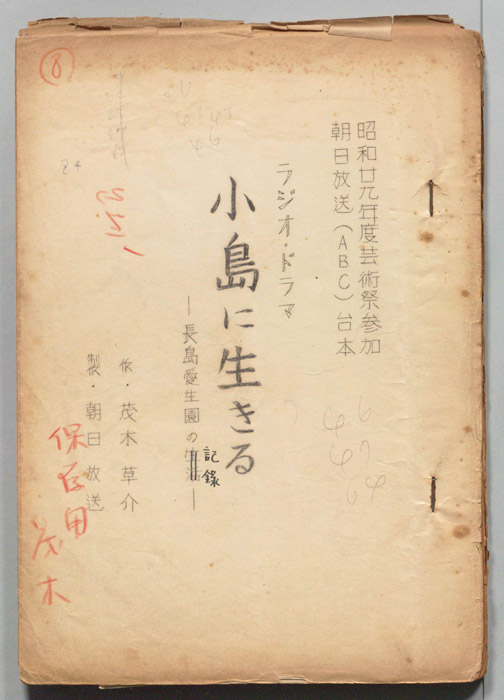 昭和廿九年度芸術祭参加
朝日放送(ABC)台本
ラジオ・ドラマ
小島に生きる
―長島愛生園の生活―
記録
作・茂木草介
製・朝日放送
保存用
茂木
⑧
24
46
6